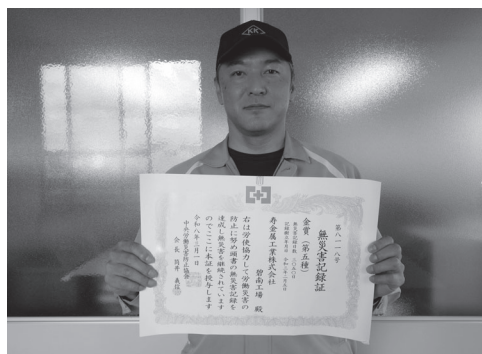 第八一一八号
無災害記録証
金賞(第五種)
寿金属工業株式会社
碧南工場 殿
右は労使協力して労働災害の
防止に努め頭書の無災害記録を
達成し無災害を継続されています
のでここに本証を授与します
令和八年三月一日
中央労働災害防止協会
会長 筒井 義信